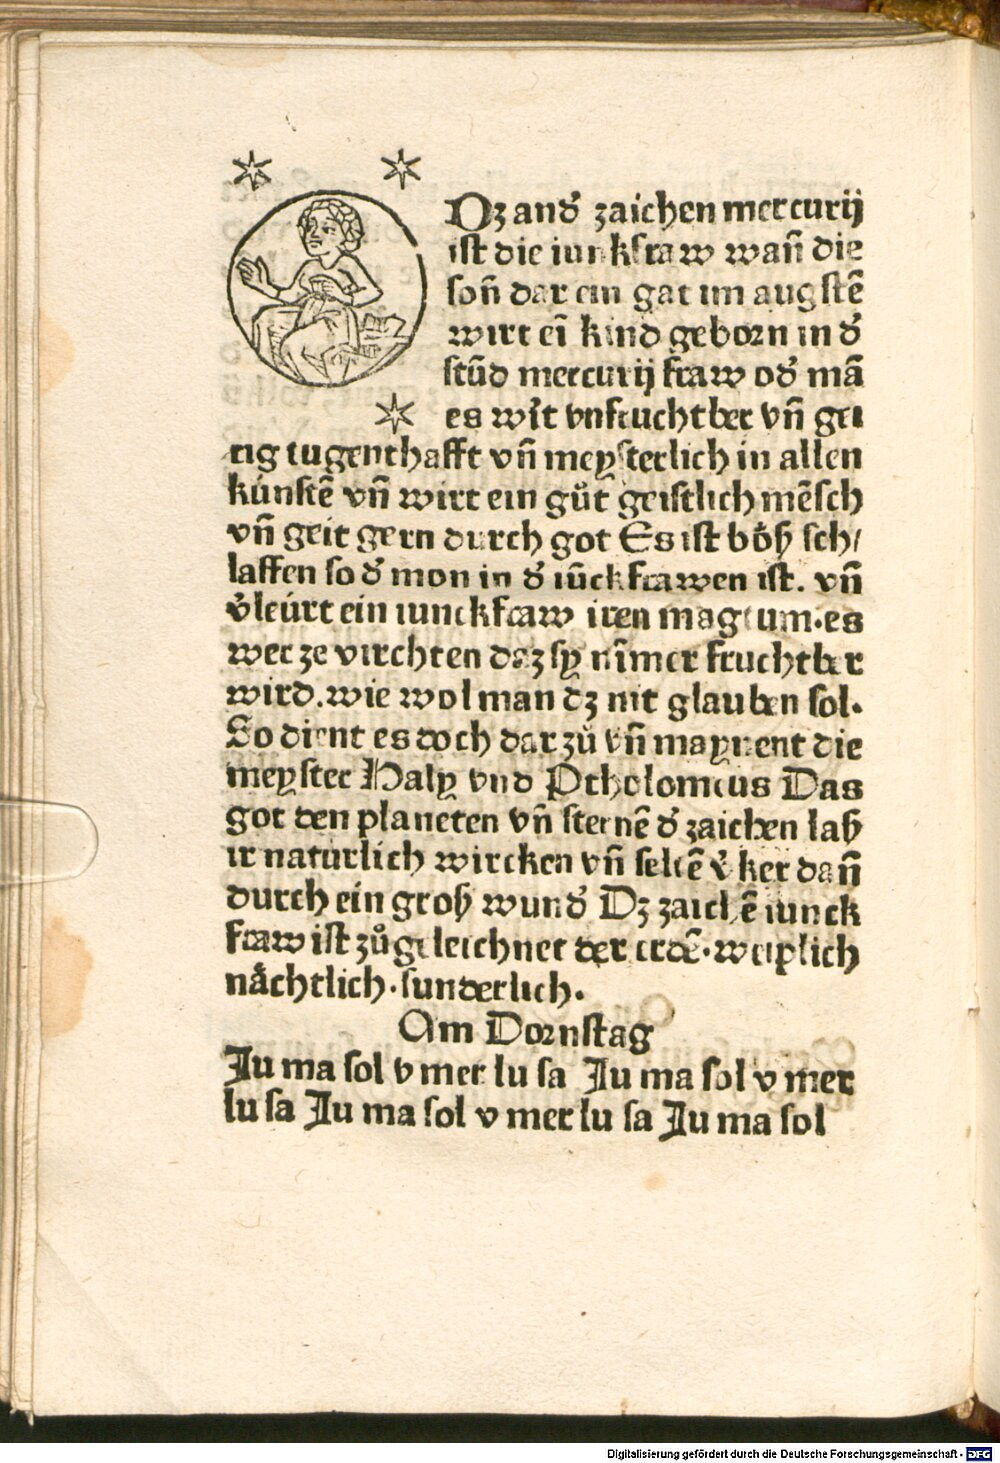 Dz and᷑ zaichen mercurij
ist die iunkfraw wañ die
soñ dar ein gat im augstē
wirt eī kind geborn in d᷑
stūd mercurij fraw od᷑ mā
es wirt vnfruchtber vñ gei
tig tugenthafft vñ meysterlich in allen
kúnstē vñ wirt ein gůt geistlich mēsch
vñ geit gern durch got Es ist bȯß sch/
laffen so d᷑ mon in d᷑ iūckfrawen ist. vñ
v᷑leúrt ein iunckfraw iren magtum·es
wer ze virchten daz sy nīmer fruchtber
wird.wie wol man dz nit glauben sol.
So dient es doch dar zů vñ maynent die
meyster Haly vnd Ptholomeus Das
got den planeten vñ sternē d᷑ zaichen laß
ir naturlich wircken vñ seltē v᷑ker dañ
durch ein groß wund᷑ Dz zaichē iunck
fraw ist zů geleichnet der erdē·weiplich
nåchtlich·sunderlich.
Am Dornstag
Ju ma sol v mer lu sa Ju ma sol v mer
lu sa Ju ma sol v mer lu sa Ju ma sol
Digitalisierung gefördert durch die Deutsche Forschungsgemeinschaft - DFG